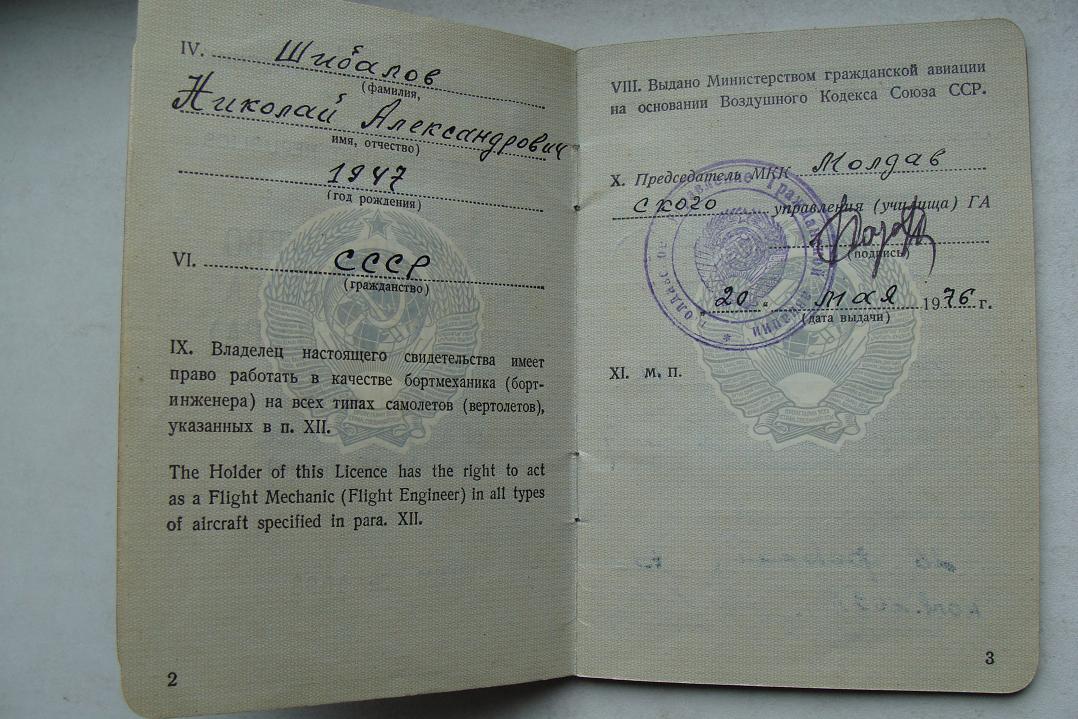 IV. Шибалов
(фамилия,
Николай Александрович
имя, отчество)
1947
(год рождения)
VI. СССР
(гражданство)
IX. Владелец настоящего свидетельства имеет
право работать в качестве бортмеханика (борт-
инженера) на всех типах самолетов (вертолетов),
указанных в п. XII.
The Holder of this Licence has the right to act
as a Flight Mechanic (Flight Engineer) in all types
of aircraft specified in para. XII.
2
VIII. Выдано Министерством гражданской авиации
на основании Воздушного Кодекса Союза ССР.
X. Председатель МКК Молдав
ского управления (училища) ГА
(подпись)
„20" мая 1976 г.
(дата выдачи)
XI. м. п.
3